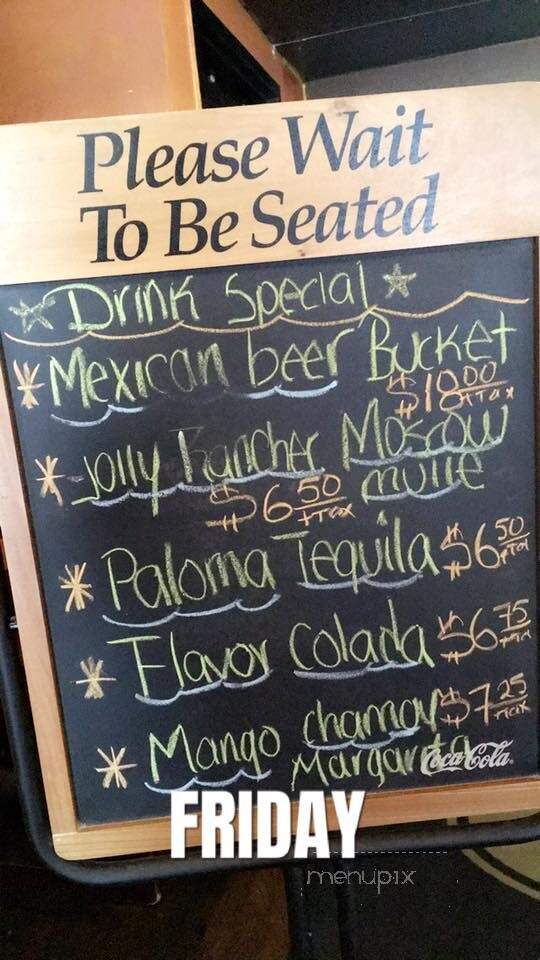 Please Wait
To Be Seated
Drink Special
Mexican beer Bucket
$18.00
+Tax
Jolly Rancher Moscow
$6 50 mule
+Tax
Paloma Tequila $6 50
+Tax
Flavor Colada $6 75
+Tax
Mango chamoy $7 25
+Tax
Margarita
Coca-Cola
FRIDAY
menupix